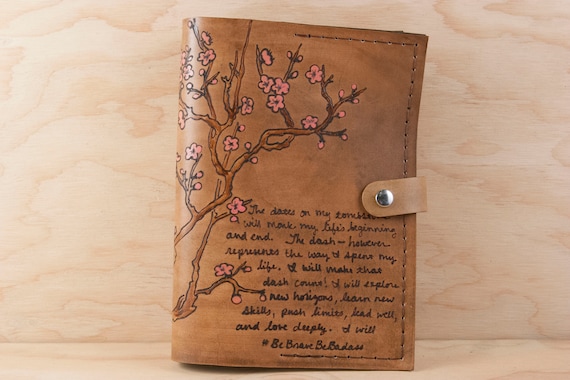 The dates on my
will mark my life's beginning
and end. The dash – however
represents the way I spent my
life. I will make that
dash count! I will explore
new horizons, learn new
skills, push limits, lead well,
and love deeply. I will
#BeBraveBeBadass